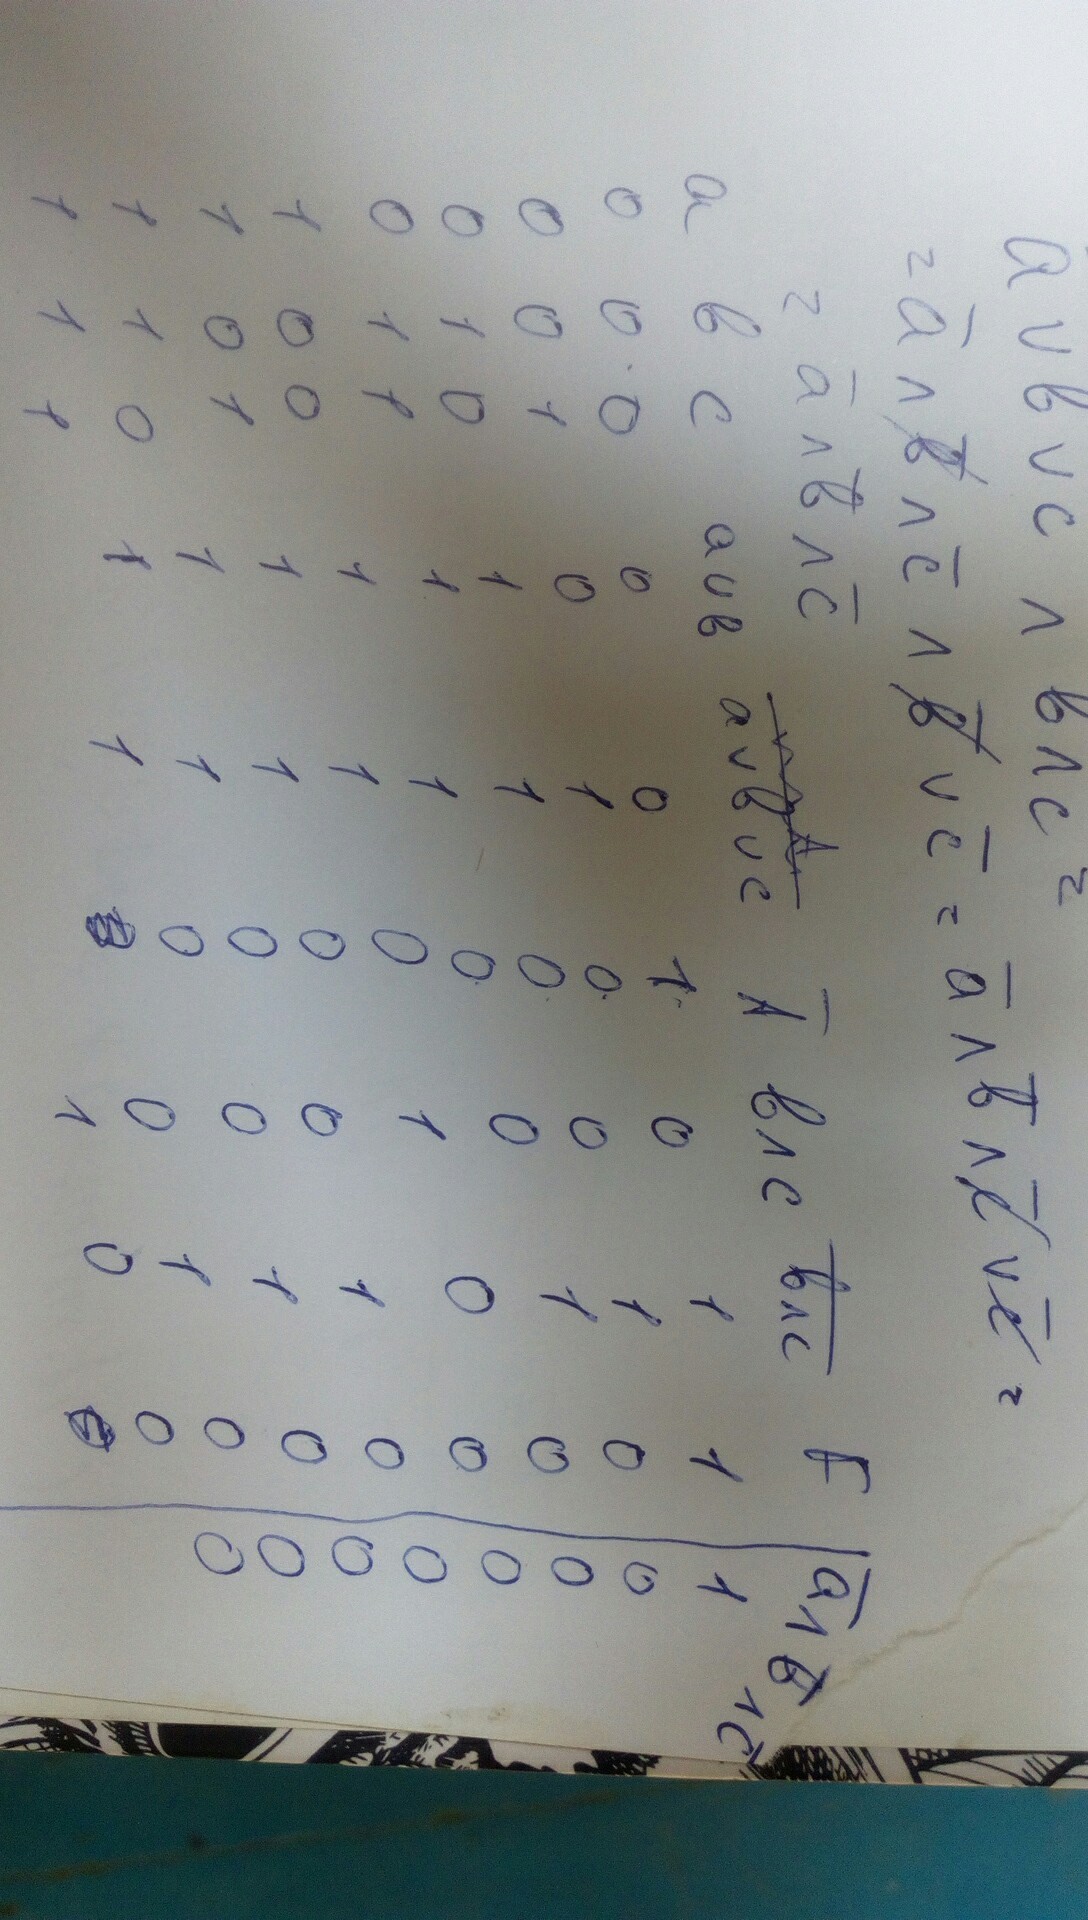 a ∨ в ∨ c ∧ в ∧ c =
= ā ∧ в̄ ∧ c̄ ∧ в̄ ∨ c̄ = ā ∧ в̄ ∧ c̄ ∨ c̄ =
= ā ∧ в̄ ∧ c̄
a в c a∨в a∨в∨c Ā в∧c в̅∧̅c̅ F ā∧в̄∧c̄
0 0 0 0 0 1 0 1 1 1
0 0 1 0 1 0 0 1 0 0
0 1 0 1 1 0 0 1 0 0
0 1 1 1 1 0 1 0 0 0
1 0 0 1 1 0 0 1 0 0
1 0 1 1 1 0 0 1 0 0
1 1 0 1 1 0 0 1 0 0
1 1 1 1 1 0 1 0 0 0